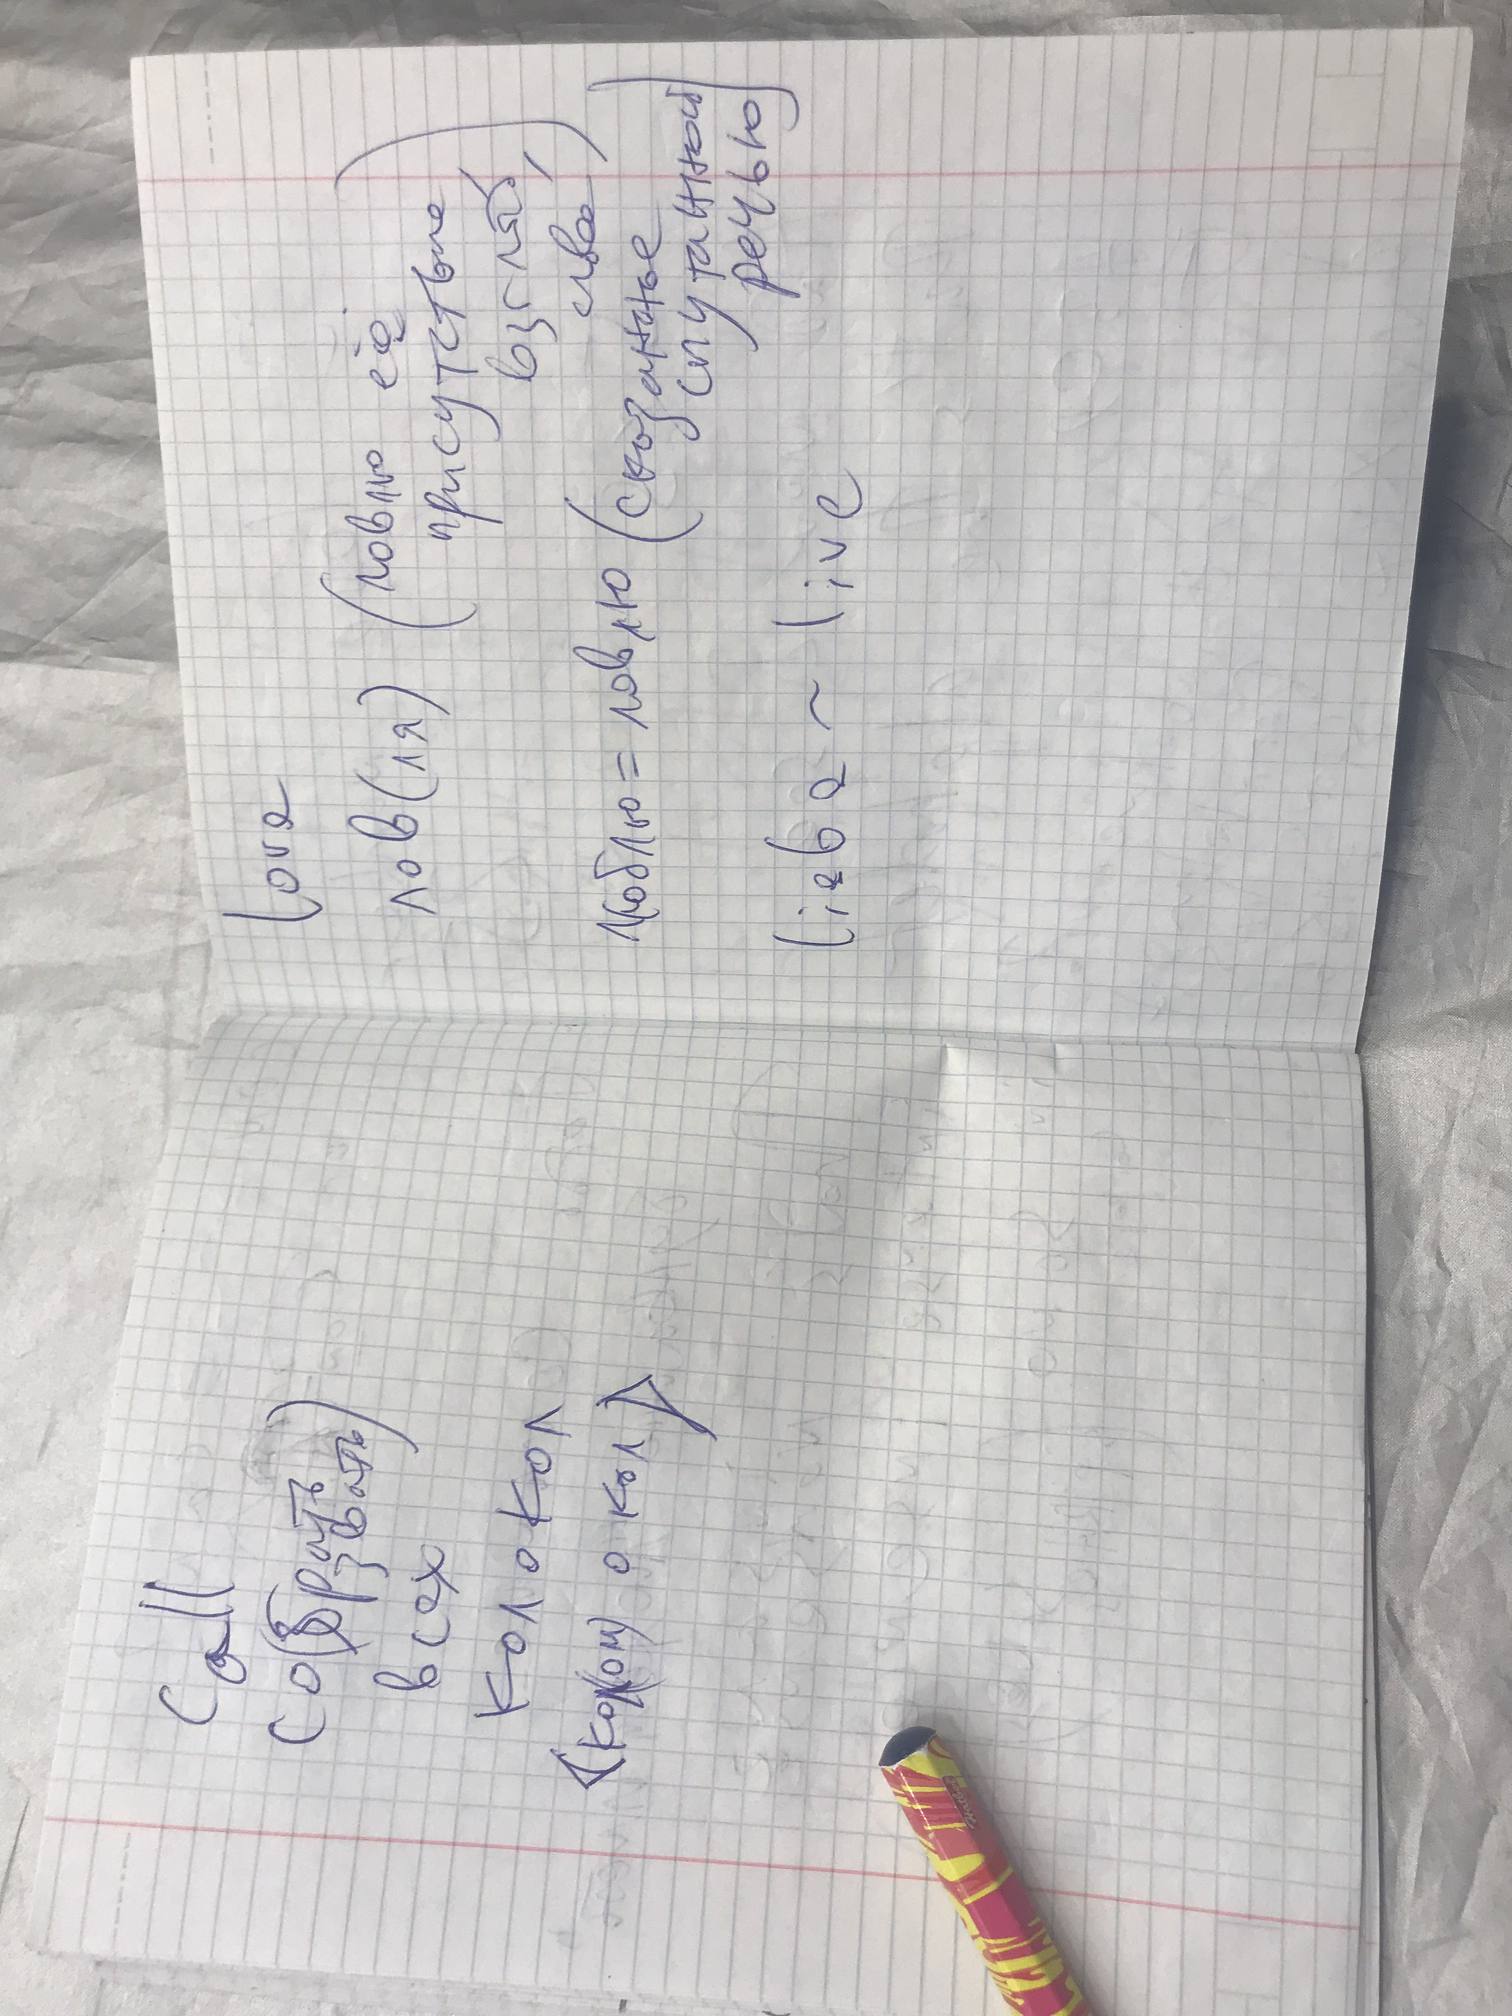 Call
со(брать
звать)
всех
колокол
кол
о кол
Love
лов(ля)
(ловлю её
присутствие
взгляд,
слова)
люблю = ловлю
(сказанное
спутанной
речью)
Liebe ~ live